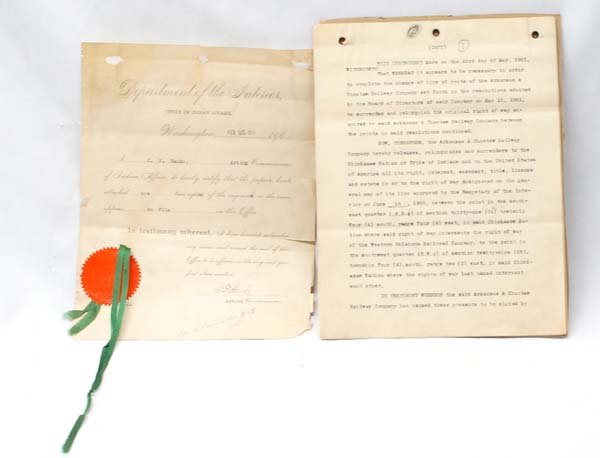 Department of the Interior,
OFFICE OF INDIAN AFFAIRS,
Washington,
I, Acting Commissioner
of Indian Affairs, do hereby certify that the papers hereto
attached are true copies of the originals as the same
appear on file in this Office.
In testimony whereof, I have hereunto subscribed
my name and caused the seal of this
Office to be affixed on the day and year
first above written.
Acting Commissioner.
(COPY) 1
THIS INSTRUMENT Made on the 22nd day of May, 1901,
WITNESSETH:
That WHEREAS it appears to be necessary in order
to complete the change of line of parts of the Arkansas &
Choctaw Railway Company set forth in the resolutions adopted
by the Board of Directors of said Company on May 11, 1901,
to surrender and relinquish the original right of way
acquired to said Arkansas & Choctaw Railway Company between
the points in said resolutions mentioned:
NOW, THEREFORE, the Arkansas & Choctaw Railway
Company hereby releases, relinquishes and surrenders to the
Chickasaw Nation or Tribe of Indians and to the United States
of America all its right, interest, easement, title, license
and estate in or to the right of way designated on the
map of its line approved by the Secretary of the
Interior on June 1900, between the point in the
east quarter of section thirty-one (31) township
four (4) south, range four (4) east, in said Chickasaw
Nation where said right of way intersects the right of way
of the Western Oklahoma Railroad Company, to the point in
the southwest quarter (S.W.¼) of section twenty-nine (29),
township four (4) south, range two (2) east, in said
Chickasaw Nation where the rights of way last named intersect
each other.
IN TESTIMONY WHEREOF the said Arkansas & Choctaw
Railway Company has caused these presents to be signed by